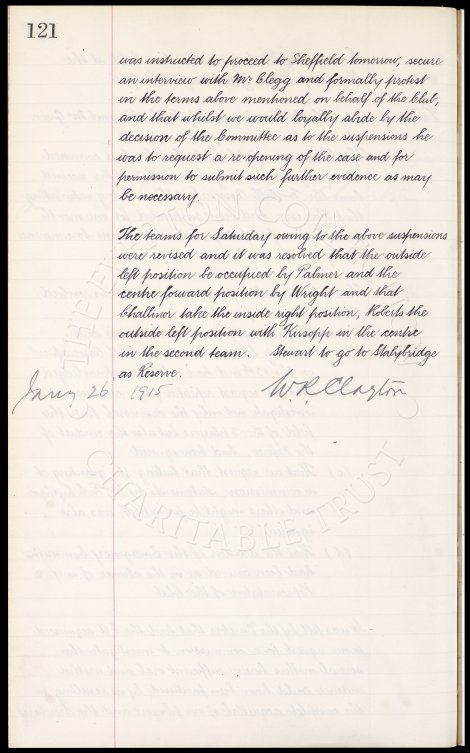 121
was instructed to proceed to Sheffield tomorrow, secure
an interview with Mr Clegg and formally protest
in the terms above mentioned on behalf of the Club,
and that whilst we would loyally abide by the
decision of the Committee as to the suspensions he
was to request a re-opening of the case and for
permission to submit such further evidence as may
be necessary.
The teams for Saturday owing to the above suspensions
were revised and it was resolved that the outside
left position be occupied by Palmer and the
centre forward position by Wright and that
Challinor take the inside right position, Roberts the
outside left position with Kirsopp in the centre
in the second team. Stewart to go to Stalybridge
as Reserve.
Jany 26 1915 W.R Clayton
CHARITABLE TRUST